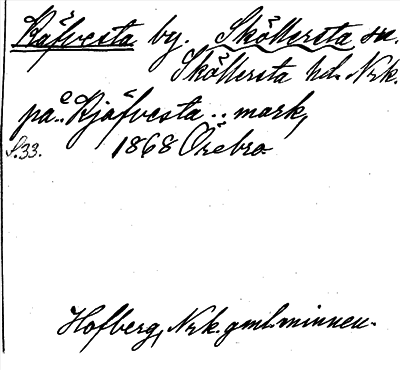 Räfvesta by. Sköllersta sn.
Sköllersta hd. Nrk.
på "Bjäfvesta" mark,
S.33. 1868 Örebro
Hofberg, Nrk. gml. minnen.